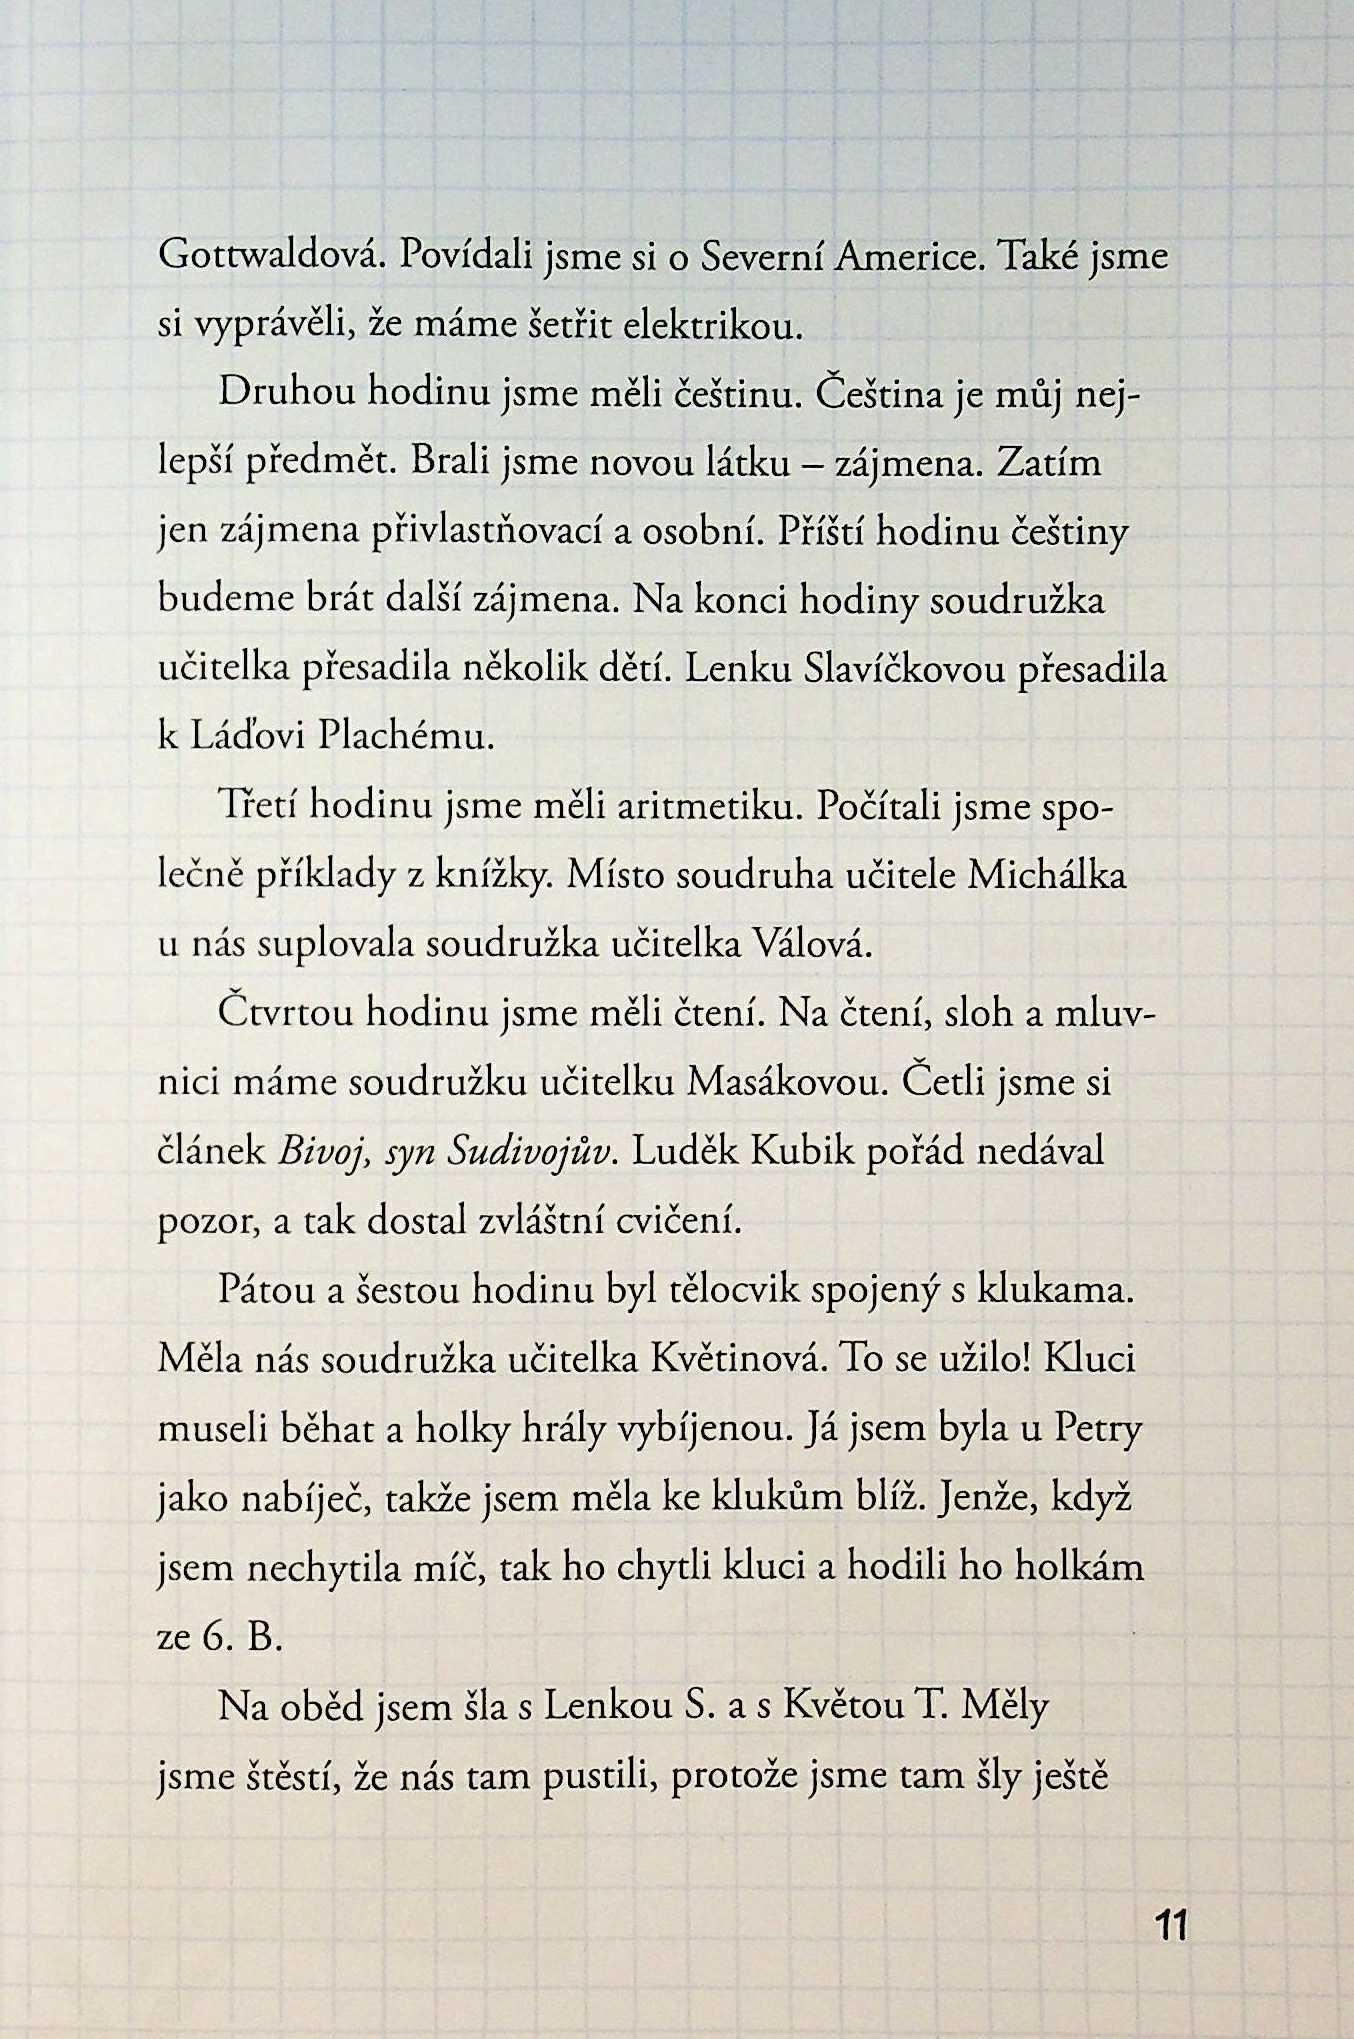 Gottwaldová. Povídali jsme si o Severní Americe. Také jsme
si vyprávěli, že máme šetřit elektrikou.
Druhou hodinu jsme měli češtinu. Čeština je můj nej-
lepší předmět. Brali jsme novou látku – zájmena. Zatím
jen zájmena přivlastňovací a osobní. Příští hodinu češtiny
budeme brát další zájmena. Na konci hodiny soudružka
učitelka přesadila několik dětí. Lenku Slavíčkovou přesadila
k Láďovi Plachému.
Třetí hodinu jsme měli aritmetiku. Počítali jsme spo-
lečně příklady z knížky. Místo soudruha učitele Michálka
u nás suplovala soudružka učitelka Válová.
Čtvrtou hodinu jsme měli čtení. Na čtení, sloh a mluv-
nici máme soudružku učitelku Masákovou. Četli jsme si
článek Bivoj, syn Sudivojův. Luděk Kubik pořád nedával
pozor, a tak dostal zvláštní cvičení.
Pátou a šestou hodinu byl tělocvik spojený s klukama.
Měla nás soudružka učitelka Květinová. To se užilo! Kluci
museli běhat a holky hrály vybíjenou. Já jsem byla u Petry
jako nabíječ, takže jsem měla ke klukům blíž. Jenže, když
jsem nechytila míč, tak ho chytli kluci a hodili ho holkám
ze 6. B.
Na oběd jsem šla s Lenkou S. a s Květou T. Měly
jsme štěstí, že nás tam pustili, protože jsme tam šly ještě
11